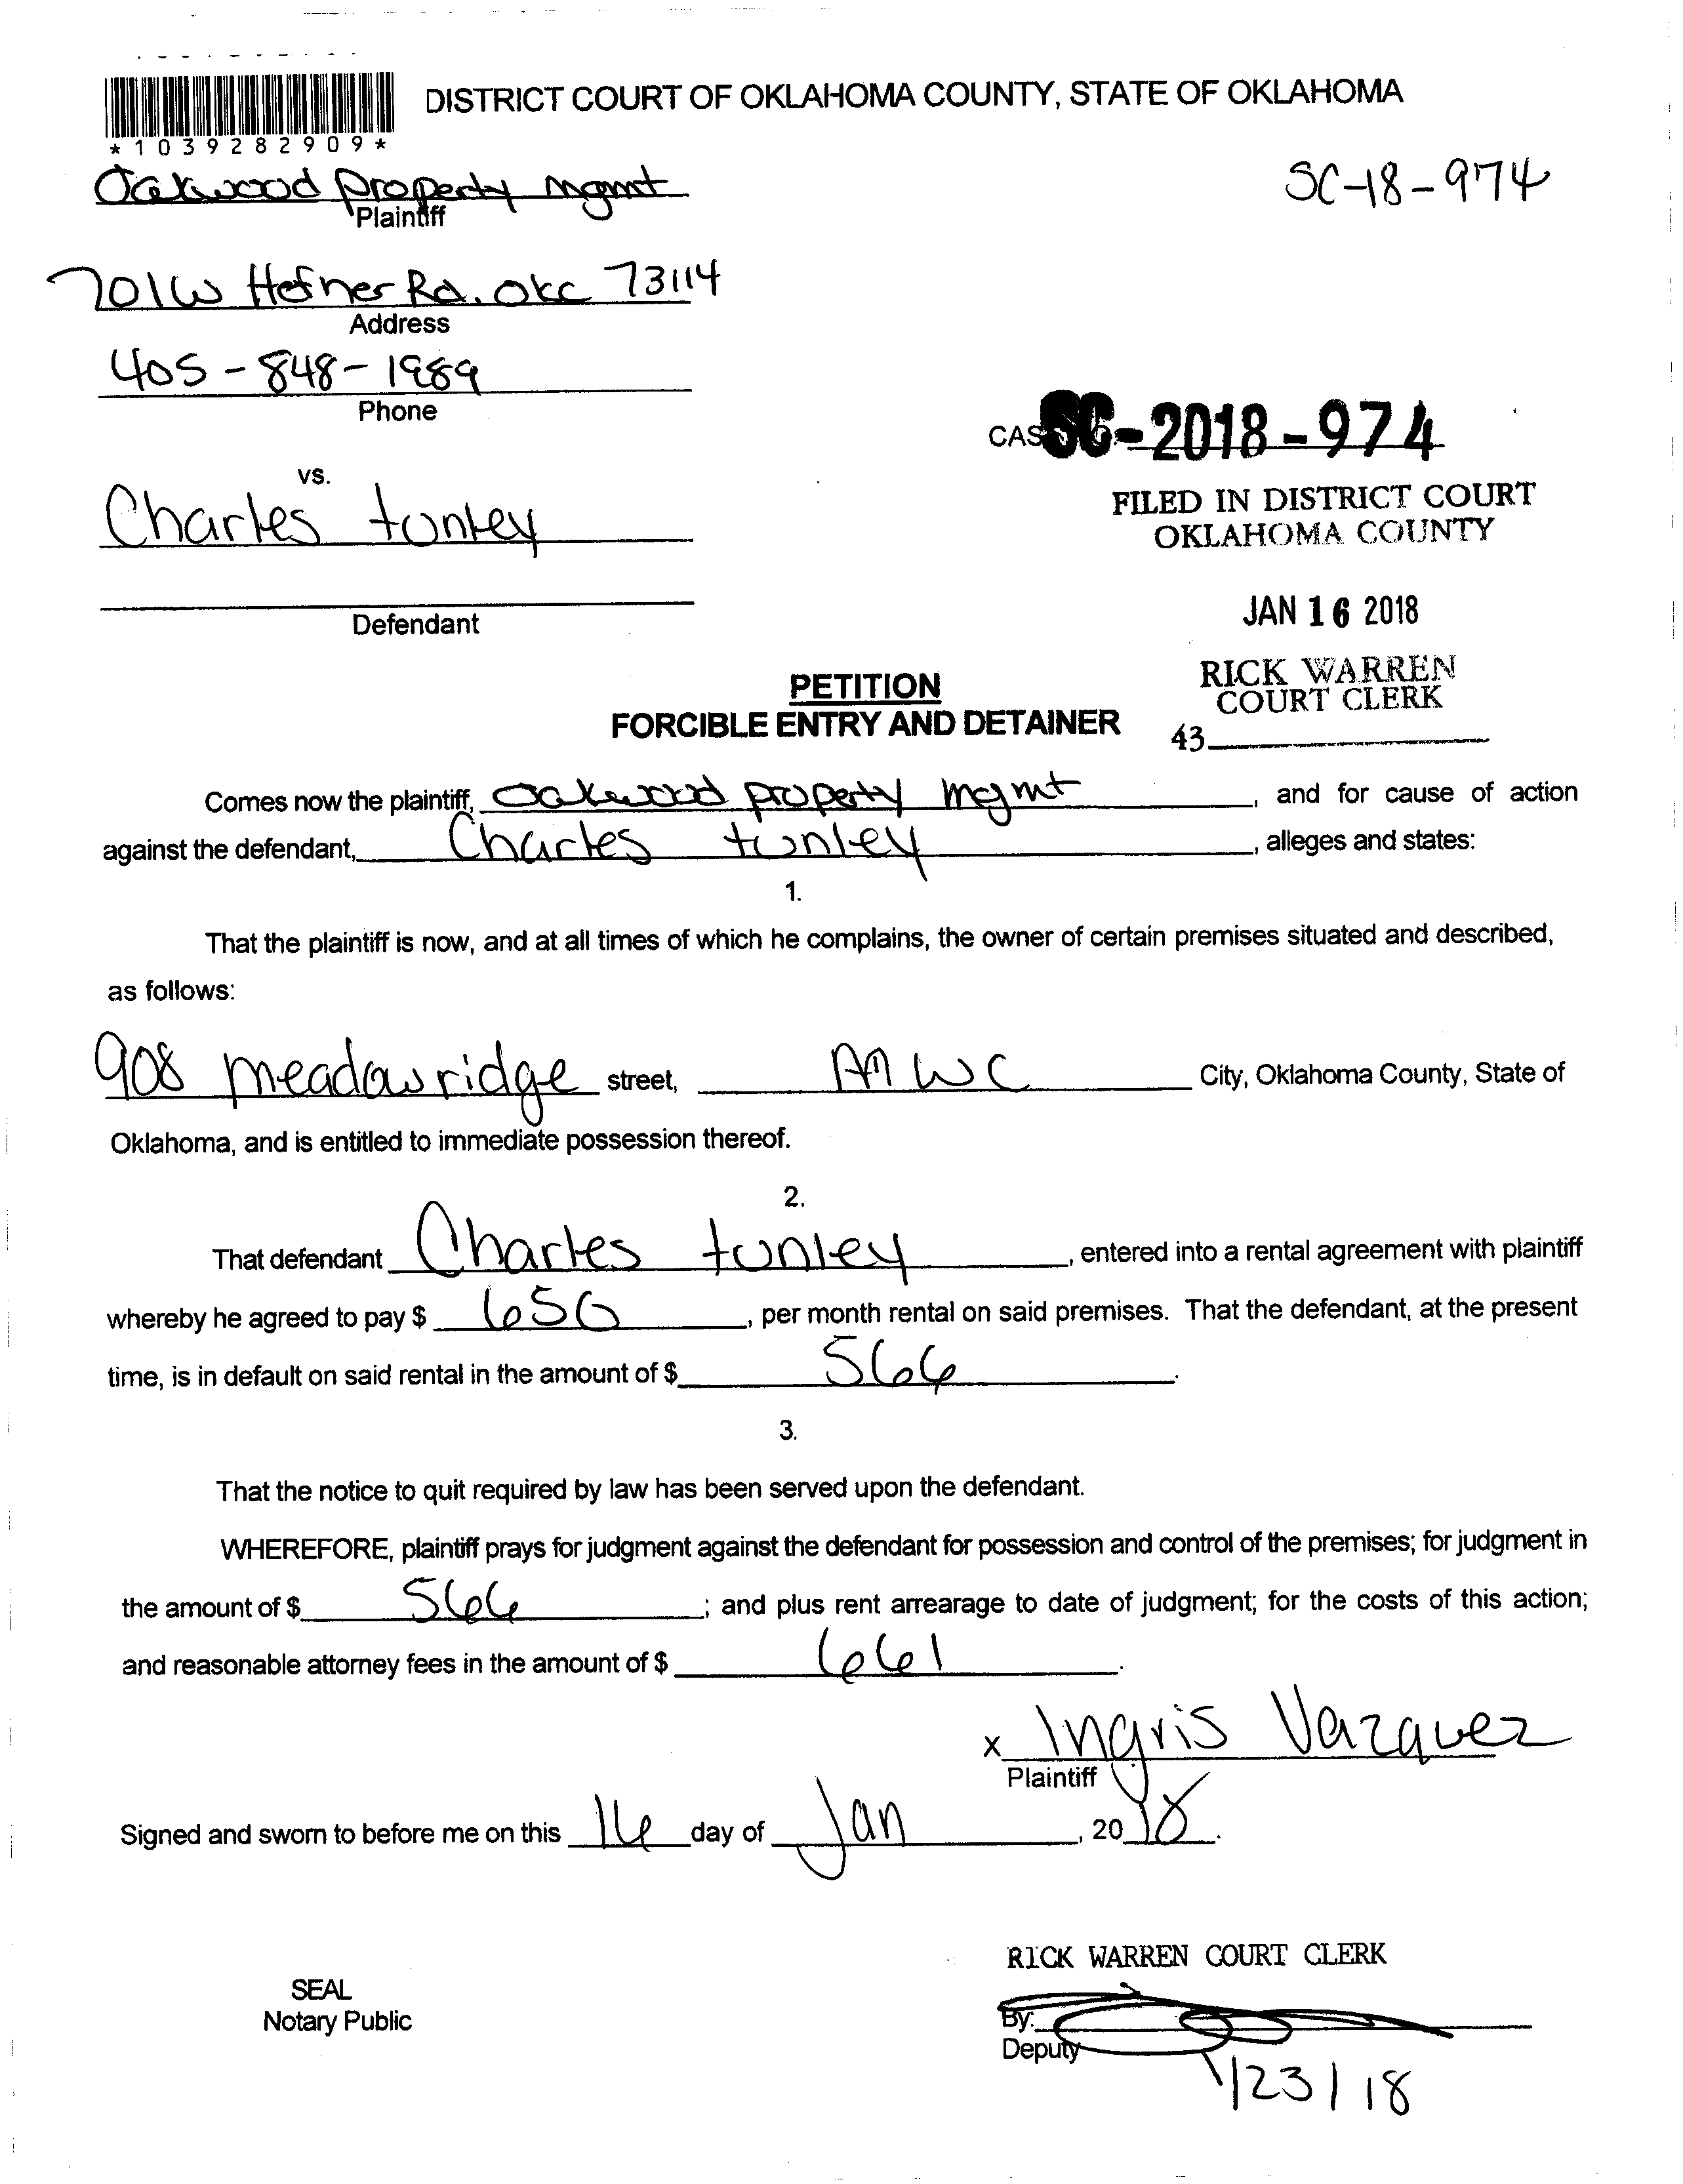 DISTRICT COURT OF OKLAHOMA COUNTY, STATE OF OKLAHOMA
*1039282909*
Oakwood property mgmt
Plaintiff
SC-18-974
701 W Hefner Rd. OKC 73114
Address
405-848-1989
Phone
CAS SC-2018-974
vs.
FILED IN DISTRICT COURT
OKLAHOMA COUNTY
Charles tunley
Defendant
JAN 16 2018
RICK WARREN
COURT CLERK
43
PETITION
FORCIBLE ENTRY AND DETAINER
Comes now the plaintiff, Oakwood property mgmt, and for cause of action
against the defendant, Charles tunley, alleges and states:
1.
That the plaintiff is now, and at all times of which he complains, the owner of certain premises situated and described,
as follows:
908 meadowridge street, MWC City, Oklahoma County, State of
Oklahoma, and is entitled to immediate possession thereof.
2.
That defendant Charles tunley, entered into a rental agreement with plaintiff
whereby he agreed to pay $ 650, per month rental on said premises. That the defendant, at the present
time, is in default on said rental in the amount of $ 566.
3.
That the notice to quit required by law has been served upon the defendant.
WHEREFORE, plaintiff prays for judgment against the defendant for possession and control of the premises; for judgment in
the amount of $ 566; and plus rent arrearage to date of judgment; for the costs of this action;
and reasonable attorney fees in the amount of $ 661.
x Ingris Vazquez
Plaintiff
Signed and sworn to before me on this 16 day of Jan, 2018.
RICK WARREN COURT CLERK
SEAL
Notary Public
By:
Deputy
1/23/18